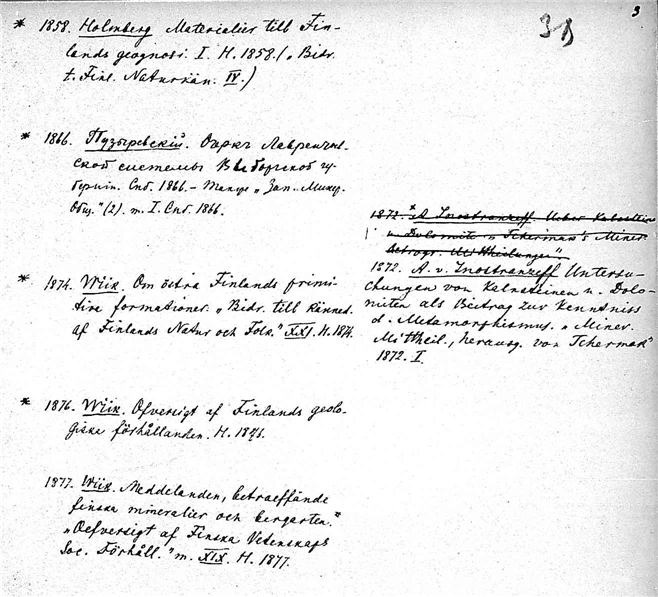 3
* 1858. Holmberg Materialier till Fin-
lands geognosi. I. H. 1858. („Bidr.
t. Finl. Naturkän. IV.)
* 1866. Пузыревскій. Очеркъ Лаврентьев-
ской системы Выборгской гу-
берніи. Спб. 1866. – Также „Зап. Минер.
Общ." (2). т. I. Спб. 1866.
* 1874. Wiik. Om östra Finlands primi-
tiva formationer. „Bidr. till Känned.
af Finlands Natur och Folk." XXI. H. 1874.
* 1876. Wiik. Öfversigt af Finlands geolo-
giska förhållanden. H. 1876.
1877. Wiik. Meddelanden, betraeffände
finska mineralier och bergarten."
„Oefversigt af Finska Vetenskaps
Soc. Förhåll." т. XIX. H. 1877.
1872. * A Inostranzeff. Ueber Kalkstein
u Dolomite „Tschermak's Miner.
petrogr. Mittheilungen".
1872. A. v. Inostranzeff Untersu-
chungen von Kalksteinen u. Dolo-
miten als Beitrag zur Kenntniss
d. Metamorphismus. „Miner.
Mittheil., herausg. von Tchermak"
1872. I.